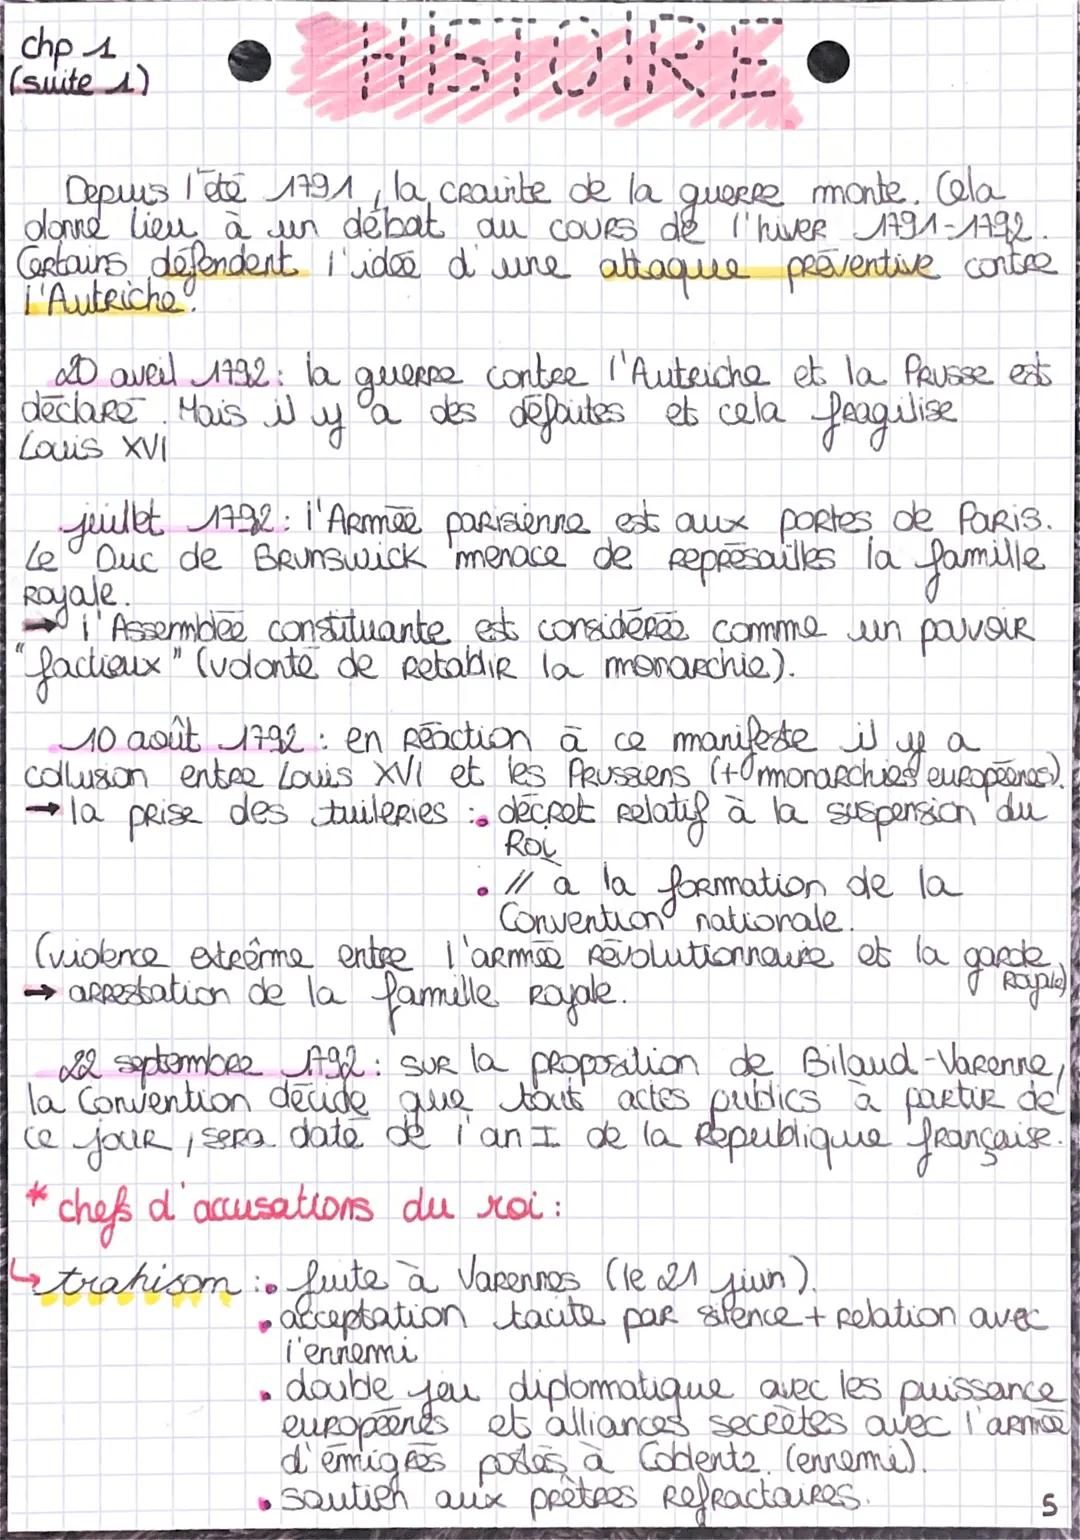 chp 1
(suite 1)
HISTOIRE
Depuis l'été 1791, la crainte de la guerre monte. Cela
donne lieu à un débat au cours de l'hiver 1791-1792.
Certains défendent l'idée d'une attaque préventive contre
l'Autriche.
20 avril 1792 : la guerre contre l'Autriche et la Prusse est
déclaré. Mais il y a des défaites et cela fragilise
Louis XVI
juillet 1792 : l'Armée parisienne est aux portes de Paris.
Le Duc de Brunswick menace de représailles la famille
Royale.
→ l'Assemblée constituante est considérée comme un pouvoir
"factieux" (volonté de retablir la monarchie).
10 août 1792 : en réaction à ce manifeste il y a
collusion entre Louis XVI et les Prussiens (+ monarchies européenes).
→ la prise des tuileries : • décret relatif à la suspension du
Roi
• // à la formation de la
Convention nationale.
(violence extrême entre l'armée révolutionnaire et la garde
Royale)
→ arrestation de la famille royale.
22 septembre 1792 : sur la proposition de Bilaud-Varenne,
la Convention décide que tout actes publics à partir de
ce jour, sera daté de l'an I de la République française.
* chefs d'accusations du roi :
↳ trahison : • fuite à Varennes (le 21 juin).
• acceptation tacite par silence + relation avec
l'ennemi
• double jeu diplomatique avec les puissance
européenes et alliances secrètes avec l'armée
d'émigrés postés à Coblentz. (ennemi).
• soutien aux prêtres Réfractaires.
5